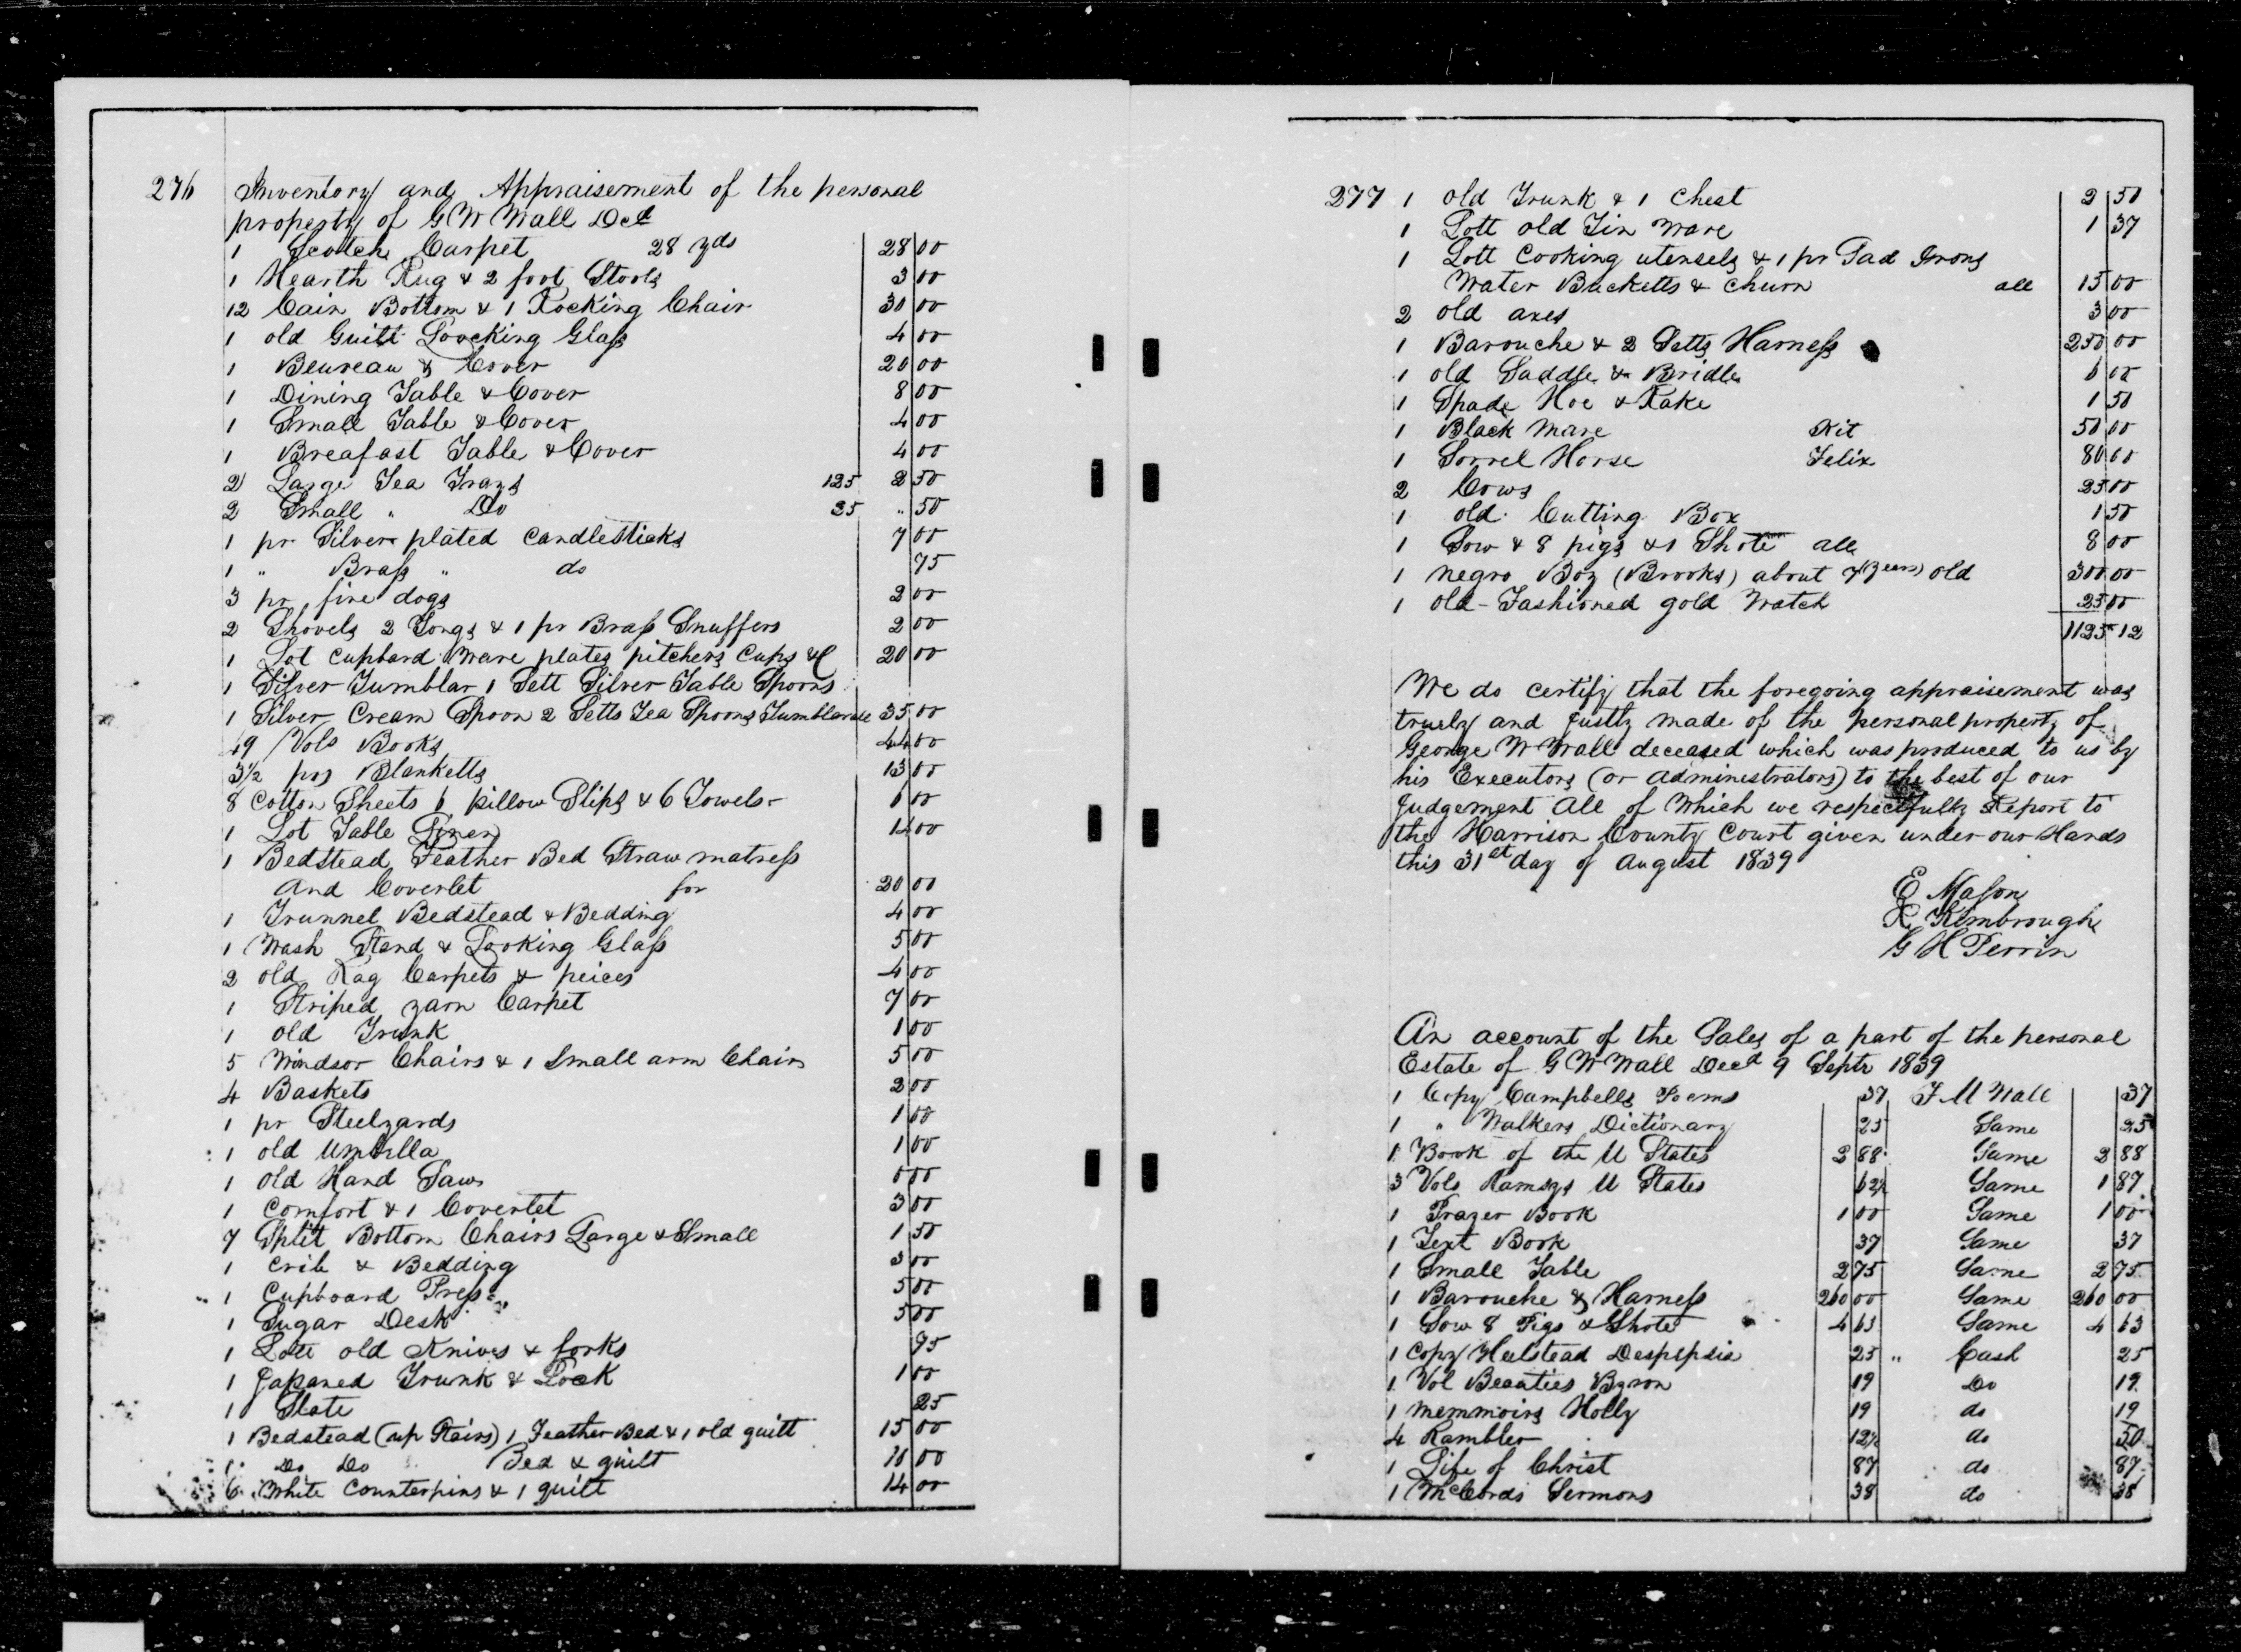 276 Inventory and Appraisement of the personal
property of G W Wall Decd
1 Scotch Carpet 28 yds 28 00
1 Hearth Rug & 2 foot Stools 3 00
12 Cain Bottom & 1 Rocking Chair 30 00
1 old Guilt Loocking Glass 4 00
1 Beureau & Cover 20 00
1 Dining Table & Cover 8 00
1 Small Table & Cover 4 00
1 Breafast Table & Cover 4 00
2 Large Tea Trays 125 2 50
2 Small " Do 25 " 50
1 pr Silver plated Candlesticks 7 00
1 " Brass " do 75
3 pr fire dogs 2 00
2 Shovels 2 Tongs & 1 pr Brass Snuffers 2 00
1 Lot Cupbard Ware plates pitchers Cups &C 20 00
1 Silver Tumblar 1 Sett Silver Table Spoons
1 Silver Cream Spoon 2 Setts Tea Spoons Tumblar all 35 00
49 Vols Books 44 00
3½ prs Blanketts 13 00
8 Cotton Sheets 6 pillow Slips & 6 Towels 6 00
1 Lot Table Linen 14 00
1 Bedstead Feather Bed Straw matress
and Coverlet for 20 00
1 Trunnel Bedstead & Bedding 4 00
1 Wash Stand & Looking Glass 5 00
2 old Rag Carpets & peices 4 00
1 Striped yarn Carpet 7 00
1 old Trunk 1 00
5 Windsor Chairs & 1 Small arm Chair 5 00
4 Baskets 2 00
1 pr Steelyards 1 00
1 old Umbrilla 1 00
1 old Hand Saw
1 Comfort & 1 Coverlet 3 00
7 Split Bottom Chairs Large & Small 1 50
1 Crib & Bedding 3 00
1 Cupboard Press 5 00
1 Sugar Desk 5 00
1 Lott old Knives & forks 75
1 Japaned Trunk & Lock 1 00
1 Slate 25
1 Bedstead (up Stairs) 1 Feather Bed & 1 old quilt 15 00
1 Do Do Bed & quilt 10 00
6 White Counterpins & 1 quilt 14 00
277 1 old Trunk & 1 Chest 2 50
1 Lott old Tin Ware 1 37
1 Lott Cooking utensels & 1 pr Sad Irons
Water Bucketts & Churn all 15 00
2 old axes 3 00
1 Barouche & 2 Setts Harness 250 00
1 old Saddle & Bridle 6 00
1 Spade Hoe & Rake 1 50
1 Black Mare Kit 50 00
1 Sorrel Horse Felix 80 00
2 Cows 25 00
1 old Cutting Box 1 50
1 Sow & 8 pigs & 1 Shote all 8 00
1 negro Boy (Brooks) about 7 years old 300 00
1 old-Fashioned gold Watch 25 00
1125 12
We do certify that the foregoing appraisement was
truely and justly made of the personal property of
George W Wall deceased which was produced to us by
his Executors (or administrators) to the best of our
Judgement all of Which we respectfully Report to
the Harrison County Court given under our Hands
this 31st day of August 1839
E Mason
R Kimbrough
G H Perrin
An account of the Sales of a part of the personal
Estate of G W Wall Decd 9 Septr 1839
1 Copy Campbells Poems 37 F M Wall 37
1 " Walkers Dictionary 25 Same 25
1 Book of the U States 2 88 Same 2 88
3 Vols Ramsys U States 62½ Same 1 87
1 Prayer Book 1 00 Same 1 00
1 Text Book 37 Same 37
1 Small Table 2 75 Same 2 75
1 Barouche & Harness 260 00 Same 260 00
1 Sow 8 Pigs & Shote 4 63 Same 4 63
1 Copy Heelstead Despepsia 25 " Cash 25
1 Vol Beauties Byron 19 Do 19
1 memmoirs Holly 19 do 19
4 Rambler 12½ do 50
1 Life of Christ 87 do 87
1 McCords Sermons 38 do 38